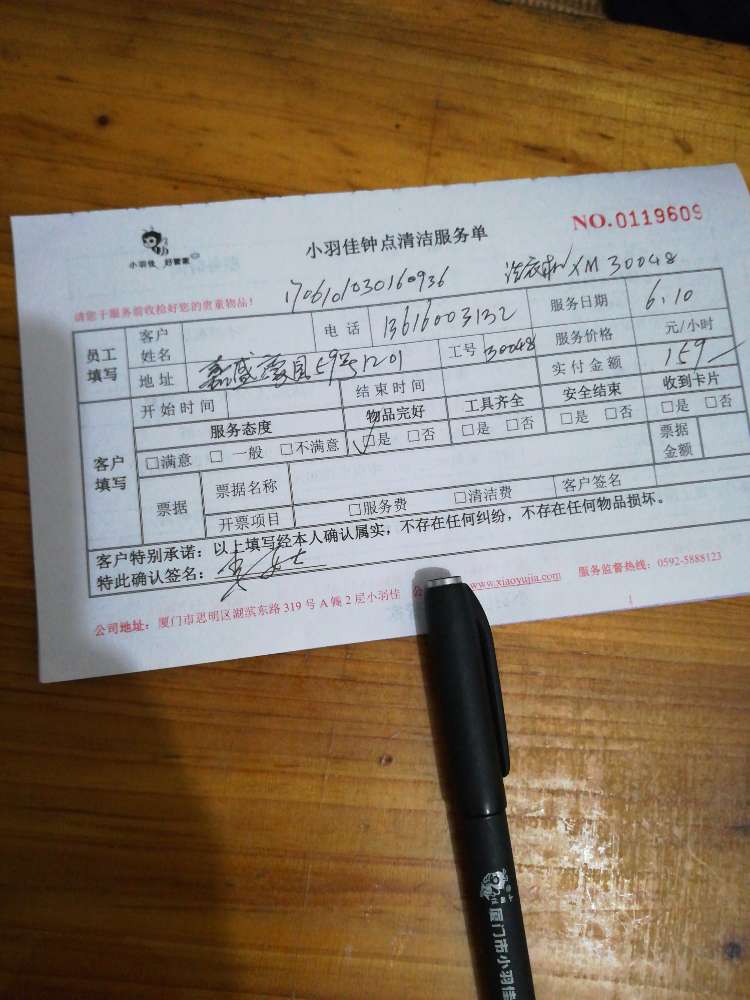 小羽佳 好管家
小羽佳钟点清洁服务单
NO.0119609
请您于服务前收拾好您的贵重物品!
1706101030160936 洗衣机 XM 30048
员工填写 客户姓名 电话 13616003132 服务日期 6.10
地址 鑫盛豪园59号1201 工号 30048 服务价格 元/小时
实付金额 159
客户填写 开始时间 结束时间
服务态度 物品完好 工具齐全 安全结束 收到卡片
□满意 □一般 □不满意 □是 □否 □是 □否 □是 □否 □是 □否
票据 票据名称 票据金额
开票项目 □服务费 □清洁费 客户签名
客户特别承诺:以上填写经本人确认属实,不存在任何纠纷,不存在任何物品损坏。
特此确认签名:
公司地址:厦门市思明区湖滨东路319号A幢2层小羽佳 www.xiaoyujia.com 服务监督热线:0592-5888123
厦门市小羽佳